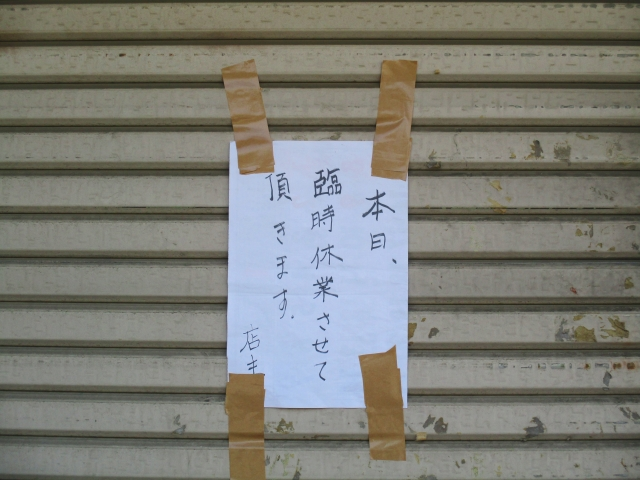 本日、
臨時休業させて
頂きます.
店主